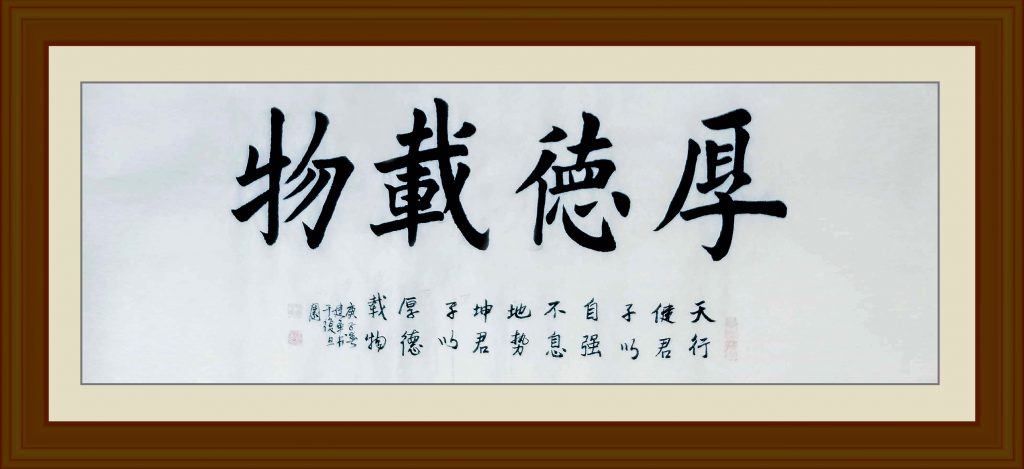 厚德載物
天行
健君
子以
自强
不息
地势
坤君
子以
厚德
载物
庚子
书
于復旦
園